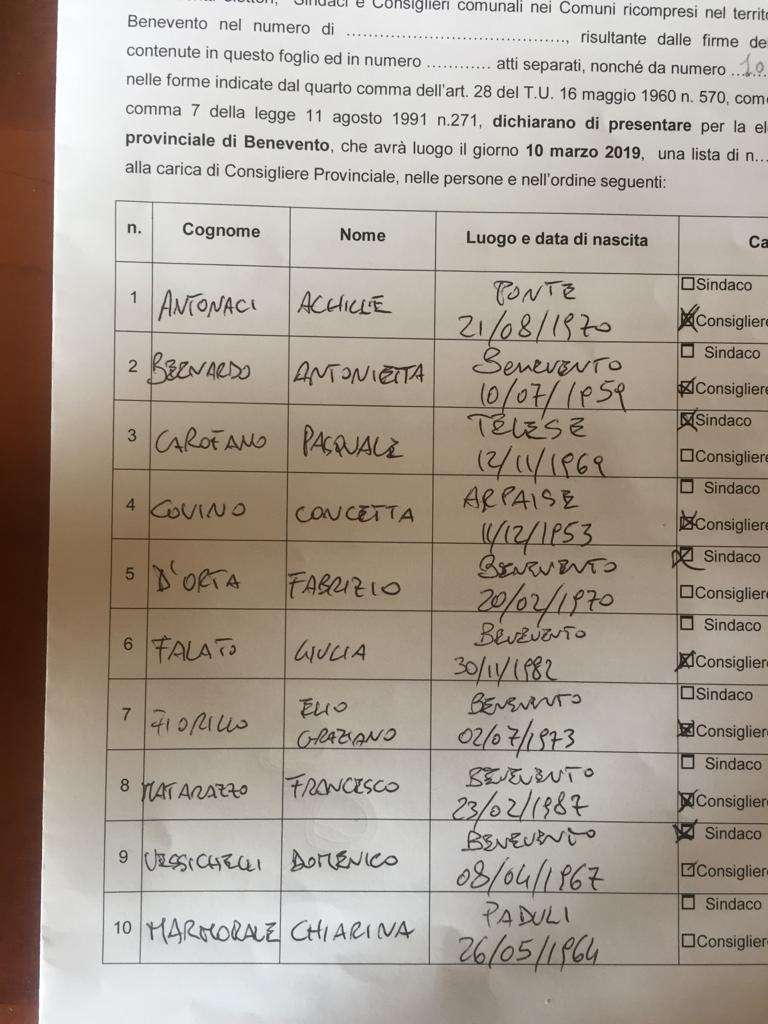 Sindaci e Consiglieri comunali nei Comuni ricompresi nel territo
Benevento nel numero di ......................................, risultante dalle firme de
contenute in questo foglio ed in numero ............ atti separati, nonché da numero ....10
nelle forme indicate dal quarto comma dell'art. 28 del T.U. 16 maggio 1960 n. 570, com
comma 7 della legge 11 agosto 1991 n.271, dichiarano di presentare per la el
provinciale di Benevento, che avrà luogo il giorno 10 marzo 2019, una lista di n...
alla carica di Consigliere Provinciale, nelle persone e nell'ordine seguenti:
n. Cognome Nome Luogo e data di nascita Ca
1 ANTONACI ACHILLE PONTE ☐Sindaco
21/08/1970 ☒Consigliere
2 BERNARDO ANTONIETTA BENEVENTO ☐ Sindaco
10/07/1959 ☒Consigliere
3 CAROFANO PASQUALE TELESE ☒Sindaco
12/11/1969 ☐Consigliere
4 COVINO CONCETTA ARPAISE ☐ Sindaco
11/12/1953 ☒Consigliere
5 D'ORTA FABRIZIO BENEVENTO ☒ Sindaco
20/02/1970 ☐Consigliere
6 FALATO GIULIA BENEVENTO ☐ Sindaco
30/11/1982 ☒Consigliere
7 FIORILLO ELIO BENEVENTO ☐Sindaco
GRAZIANO 02/07/1973 ☒Consigliere
8 MATARAZZO FRANCESCO BENEVENTO ☐ Sindaco
23/02/1987 ☒Consigliere
9 VESSICHELLI DOMENICO BENEVENTO ☒ Sindaco
08/04/1967 ☐Consigliere
10 MARMORALE CHIARINA PADULI ☐ Sindaco
26/05/1964 ☐Consigliere